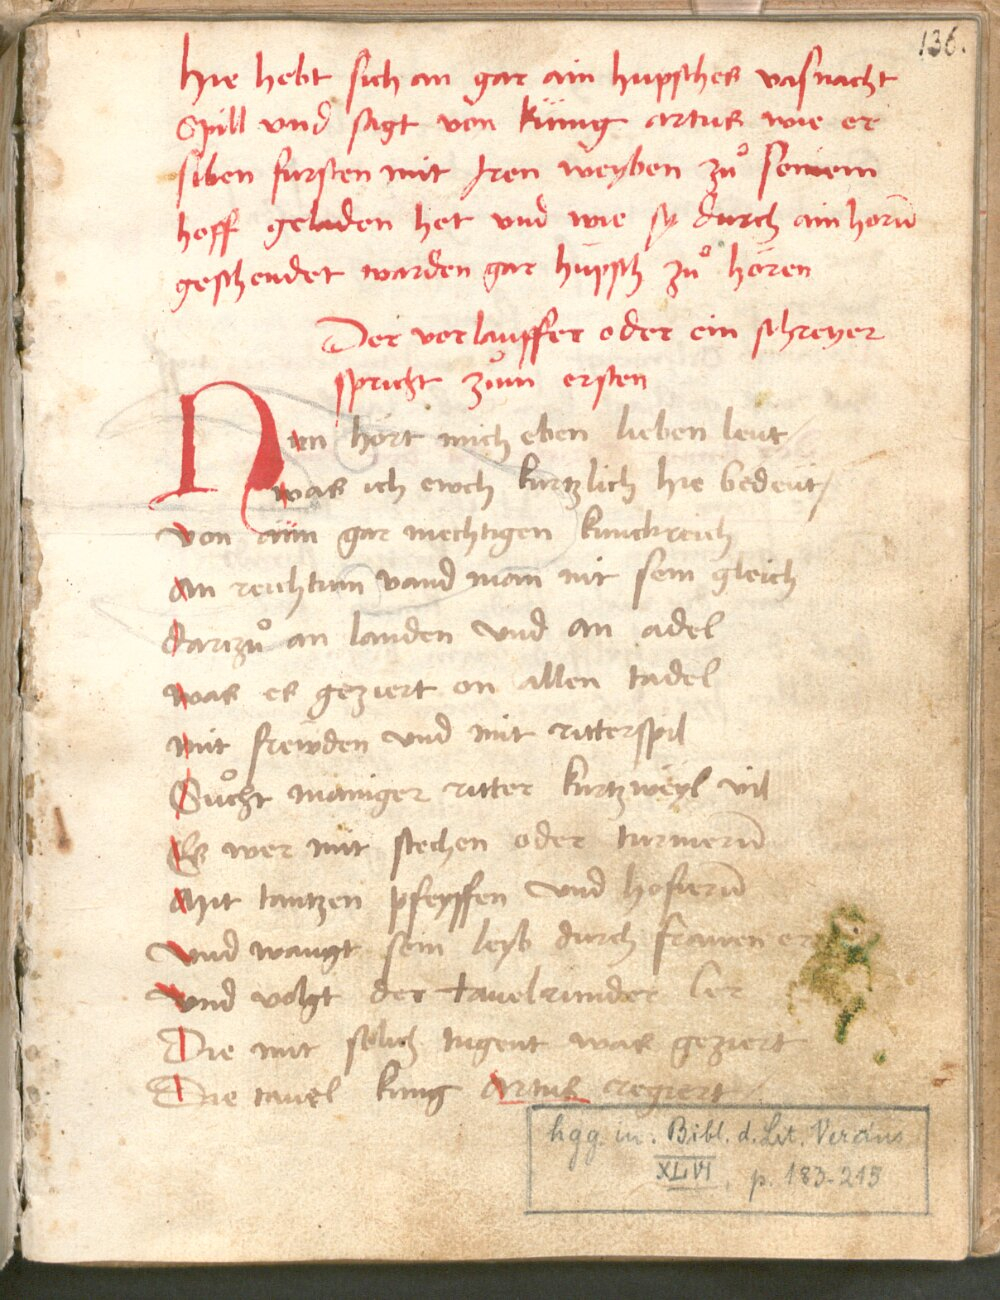 136.
Hie hebt sich an gar ain hupsches vasnacht
Spill vnd sagt von künig artus wie er
siben fursten mit Iren weyben zuͦ seinem
hoff geladen het vnd wie sy durch ain horn̄
geschendet warden gar hüpsch zuͦ hören
Der vorlauffer oder ein schreyer
spricht zum ersten
Nun hört mich eben lieben leüt
was ich ewch kurtzlich hie bedeüt /
von aim gar mechtigen kunckreich
An reichtum vand man nit sein gleich
darzuͦ an landen vnd an adel
was es geziert on allen tadel
mit frewden vnd mit ritterspil
Suͦcht maniger ritter kurtzweyl vil
Es wer mit stechen oder turniern̄
Mit tantzen pfeyffen vnd hofiern̄
vnd waugt sein leyb durch frawen er
vnd volgt der tauelrunder ler
Die mit solich tugent was geziert
Die tauel kung artus regiert /
hgg. in: Bibl. d. Lit. Vereins
XLVI, p. 183-215